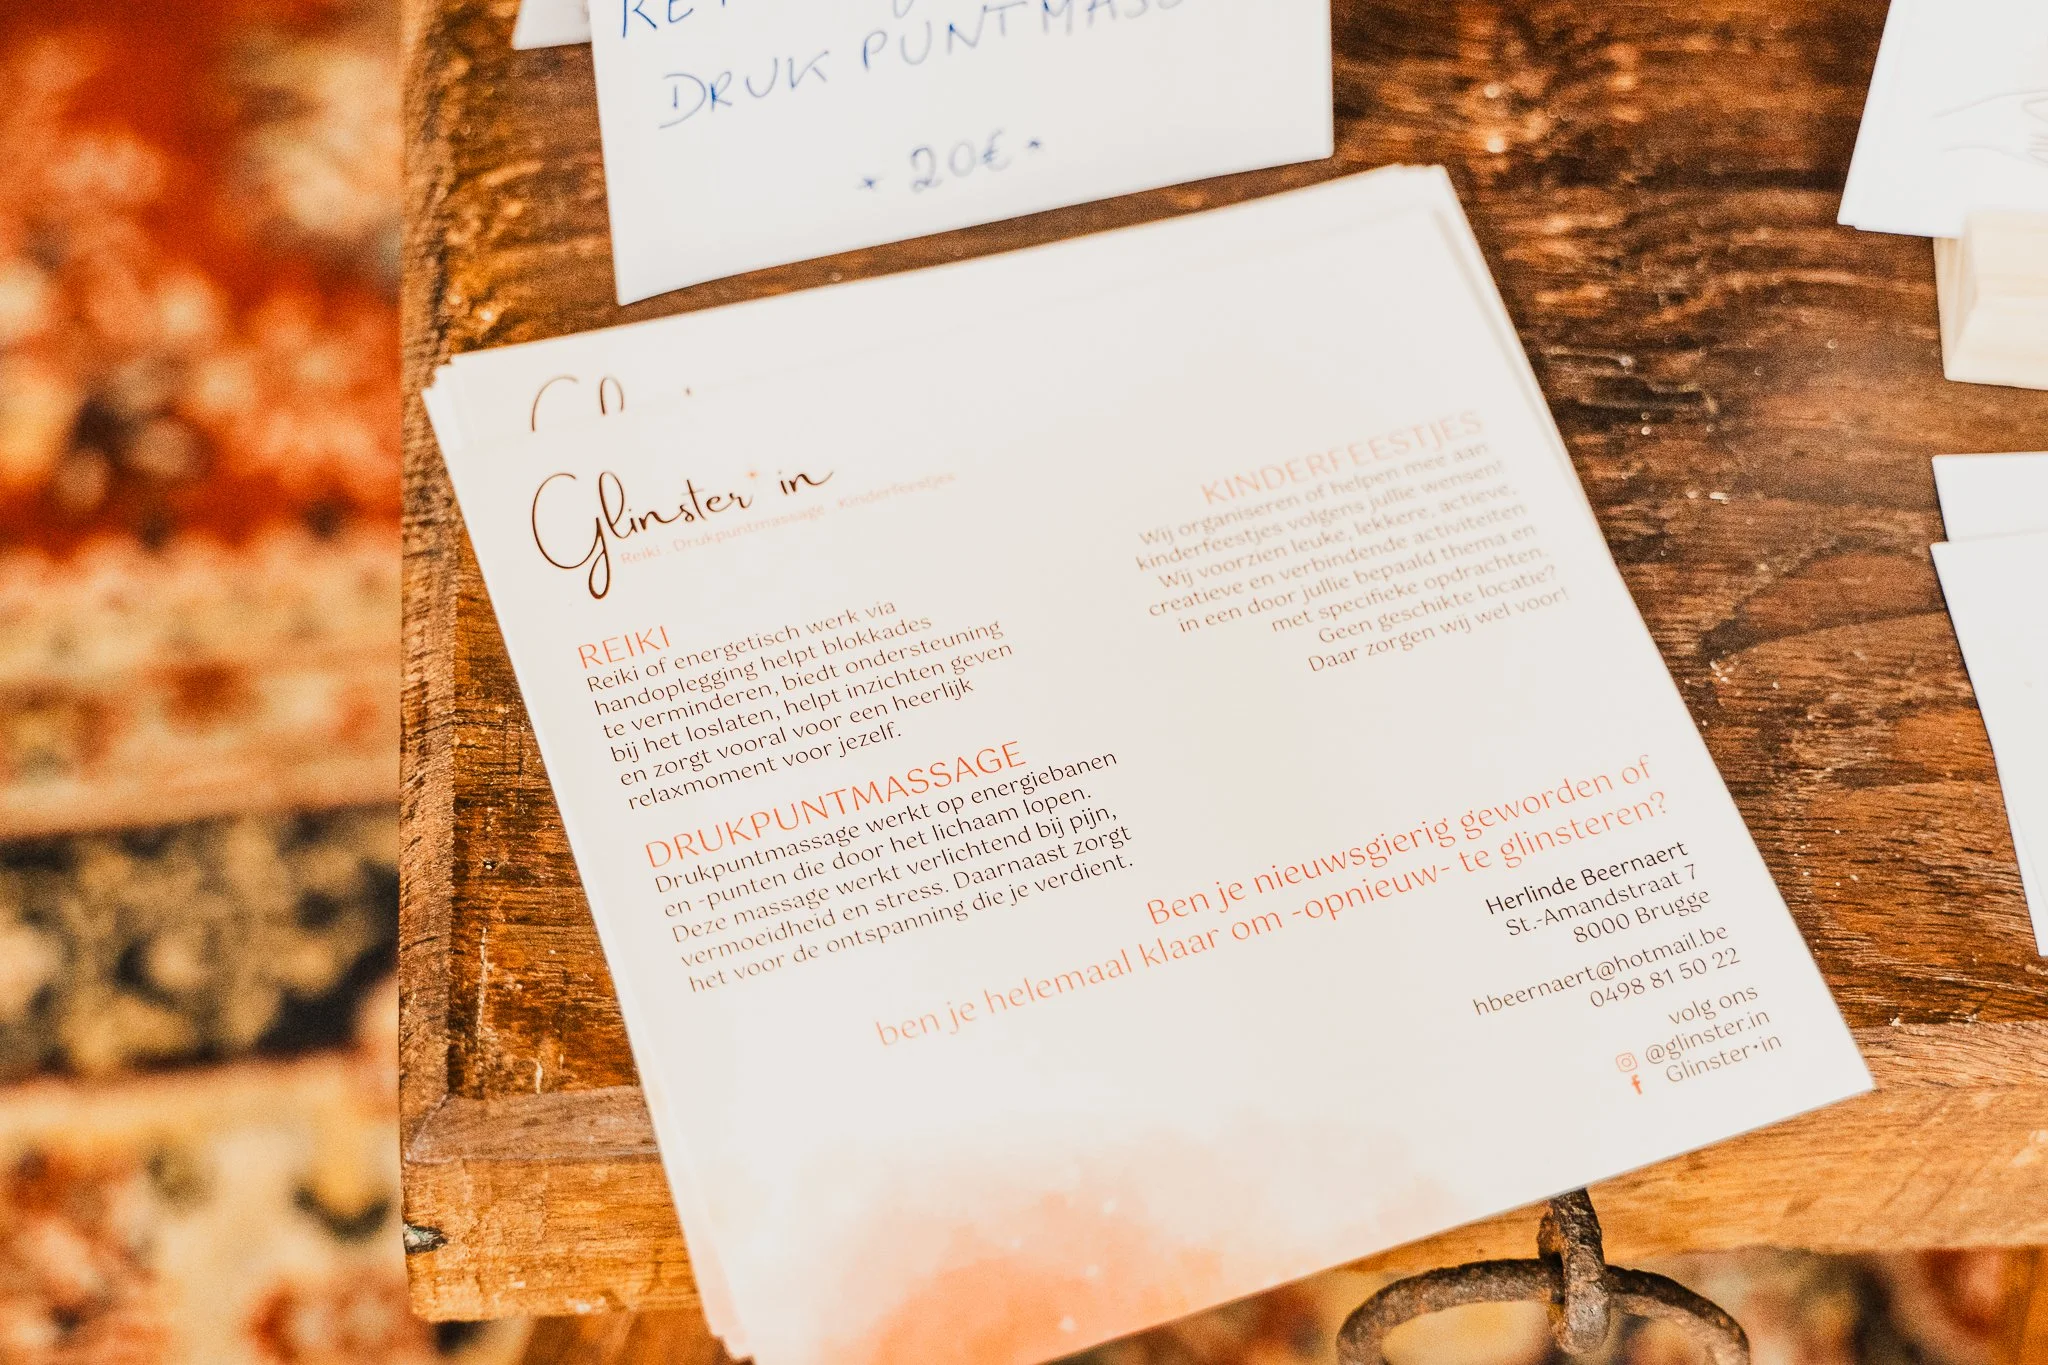 DRUKPUNTMASS
* 20€ *
Glinster*in
Reiki . Drukpuntmassage . Kinderfeestjes
REIKI
Reiki of energetisch werk via
handoplegging helpt blokkades
te verminderen, biedt ondersteuning
bij het loslaten, helpt inzichten geven
en zorgt vooral voor een heerlijk
relaxmoment voor jezelf.
DRUKPUNTMASSAGE
Drukpuntmassage werkt op energiebanen
en -punten die door het lichaam lopen.
Deze massage werkt verlichtend bij pijn,
vermoeidheid en stress. Daarnaast zorgt
het voor de ontspanning die je verdient.
KINDERFEESTJES
Wij organiseren of helpen mee aan
kinderfeestjes volgens jullie wensen!
Wij voorzien leuke, lekkere, actieve,
creatieve en verbindende activiteiten
in een door jullie bepaald thema en
met specifieke opdrachten.
Geen geschikte locatie?
Daar zorgen wij wel voor!
Ben je nieuwsgierig geworden of
ben je helemaal klaar om -opnieuw- te glinsteren?
Herlinde Beernaert
St.-Amandstraat 7
8000 Brugge
hbeernaert@hotmail.be
0498 81 50 22
volg ons
@glinster.in
Glinster•in